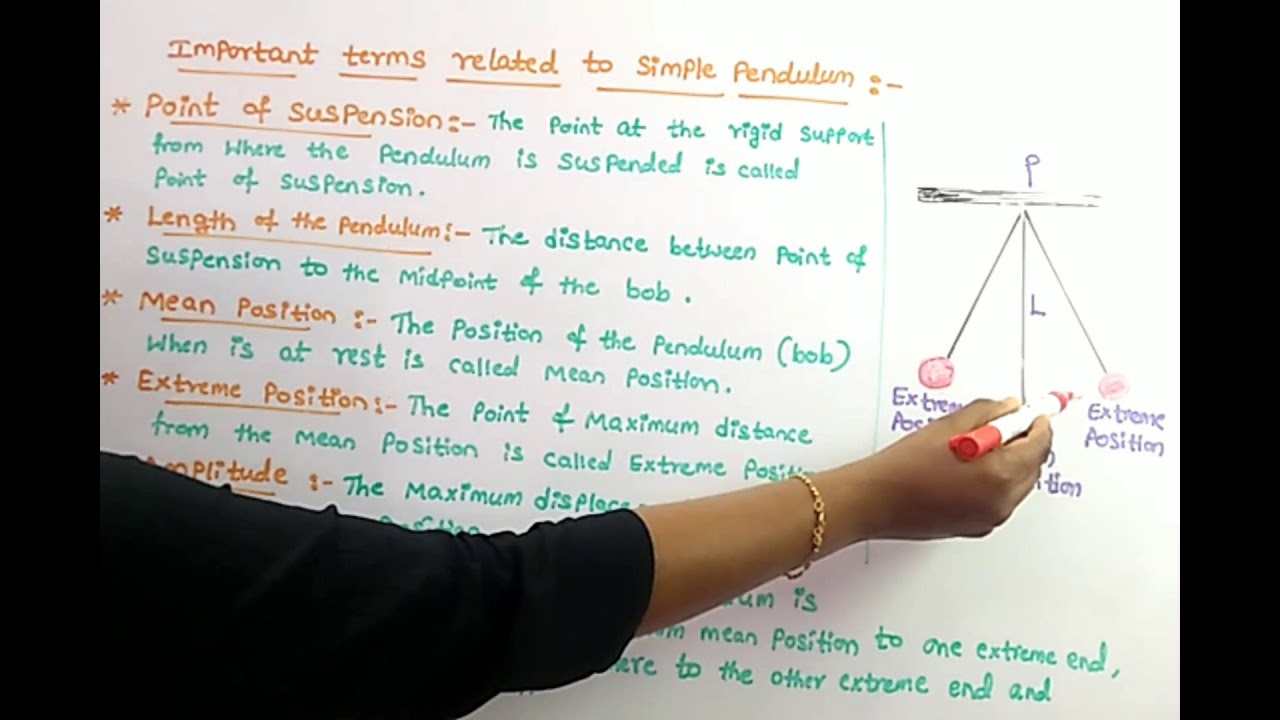 Important terms related to Simple Pendulum :-
* Point of Suspension:- The Point at the rigid Support
from Where the Pendulum is Suspended is called
Point of Suspension.
* Length of the Pendulum:- The distance between Point of
Suspension to the Midpoint of the bob.
* Mean Position :- The Position of the Pendulum (bob)
When is at rest is called Mean Position.
* Extreme Position:- The Point of Maximum distance
from the Mean Position is called Extreme
:- The Maximum
is
mean Position to one extreme end,
to the other extreme end and
P
L
Extreme
Position